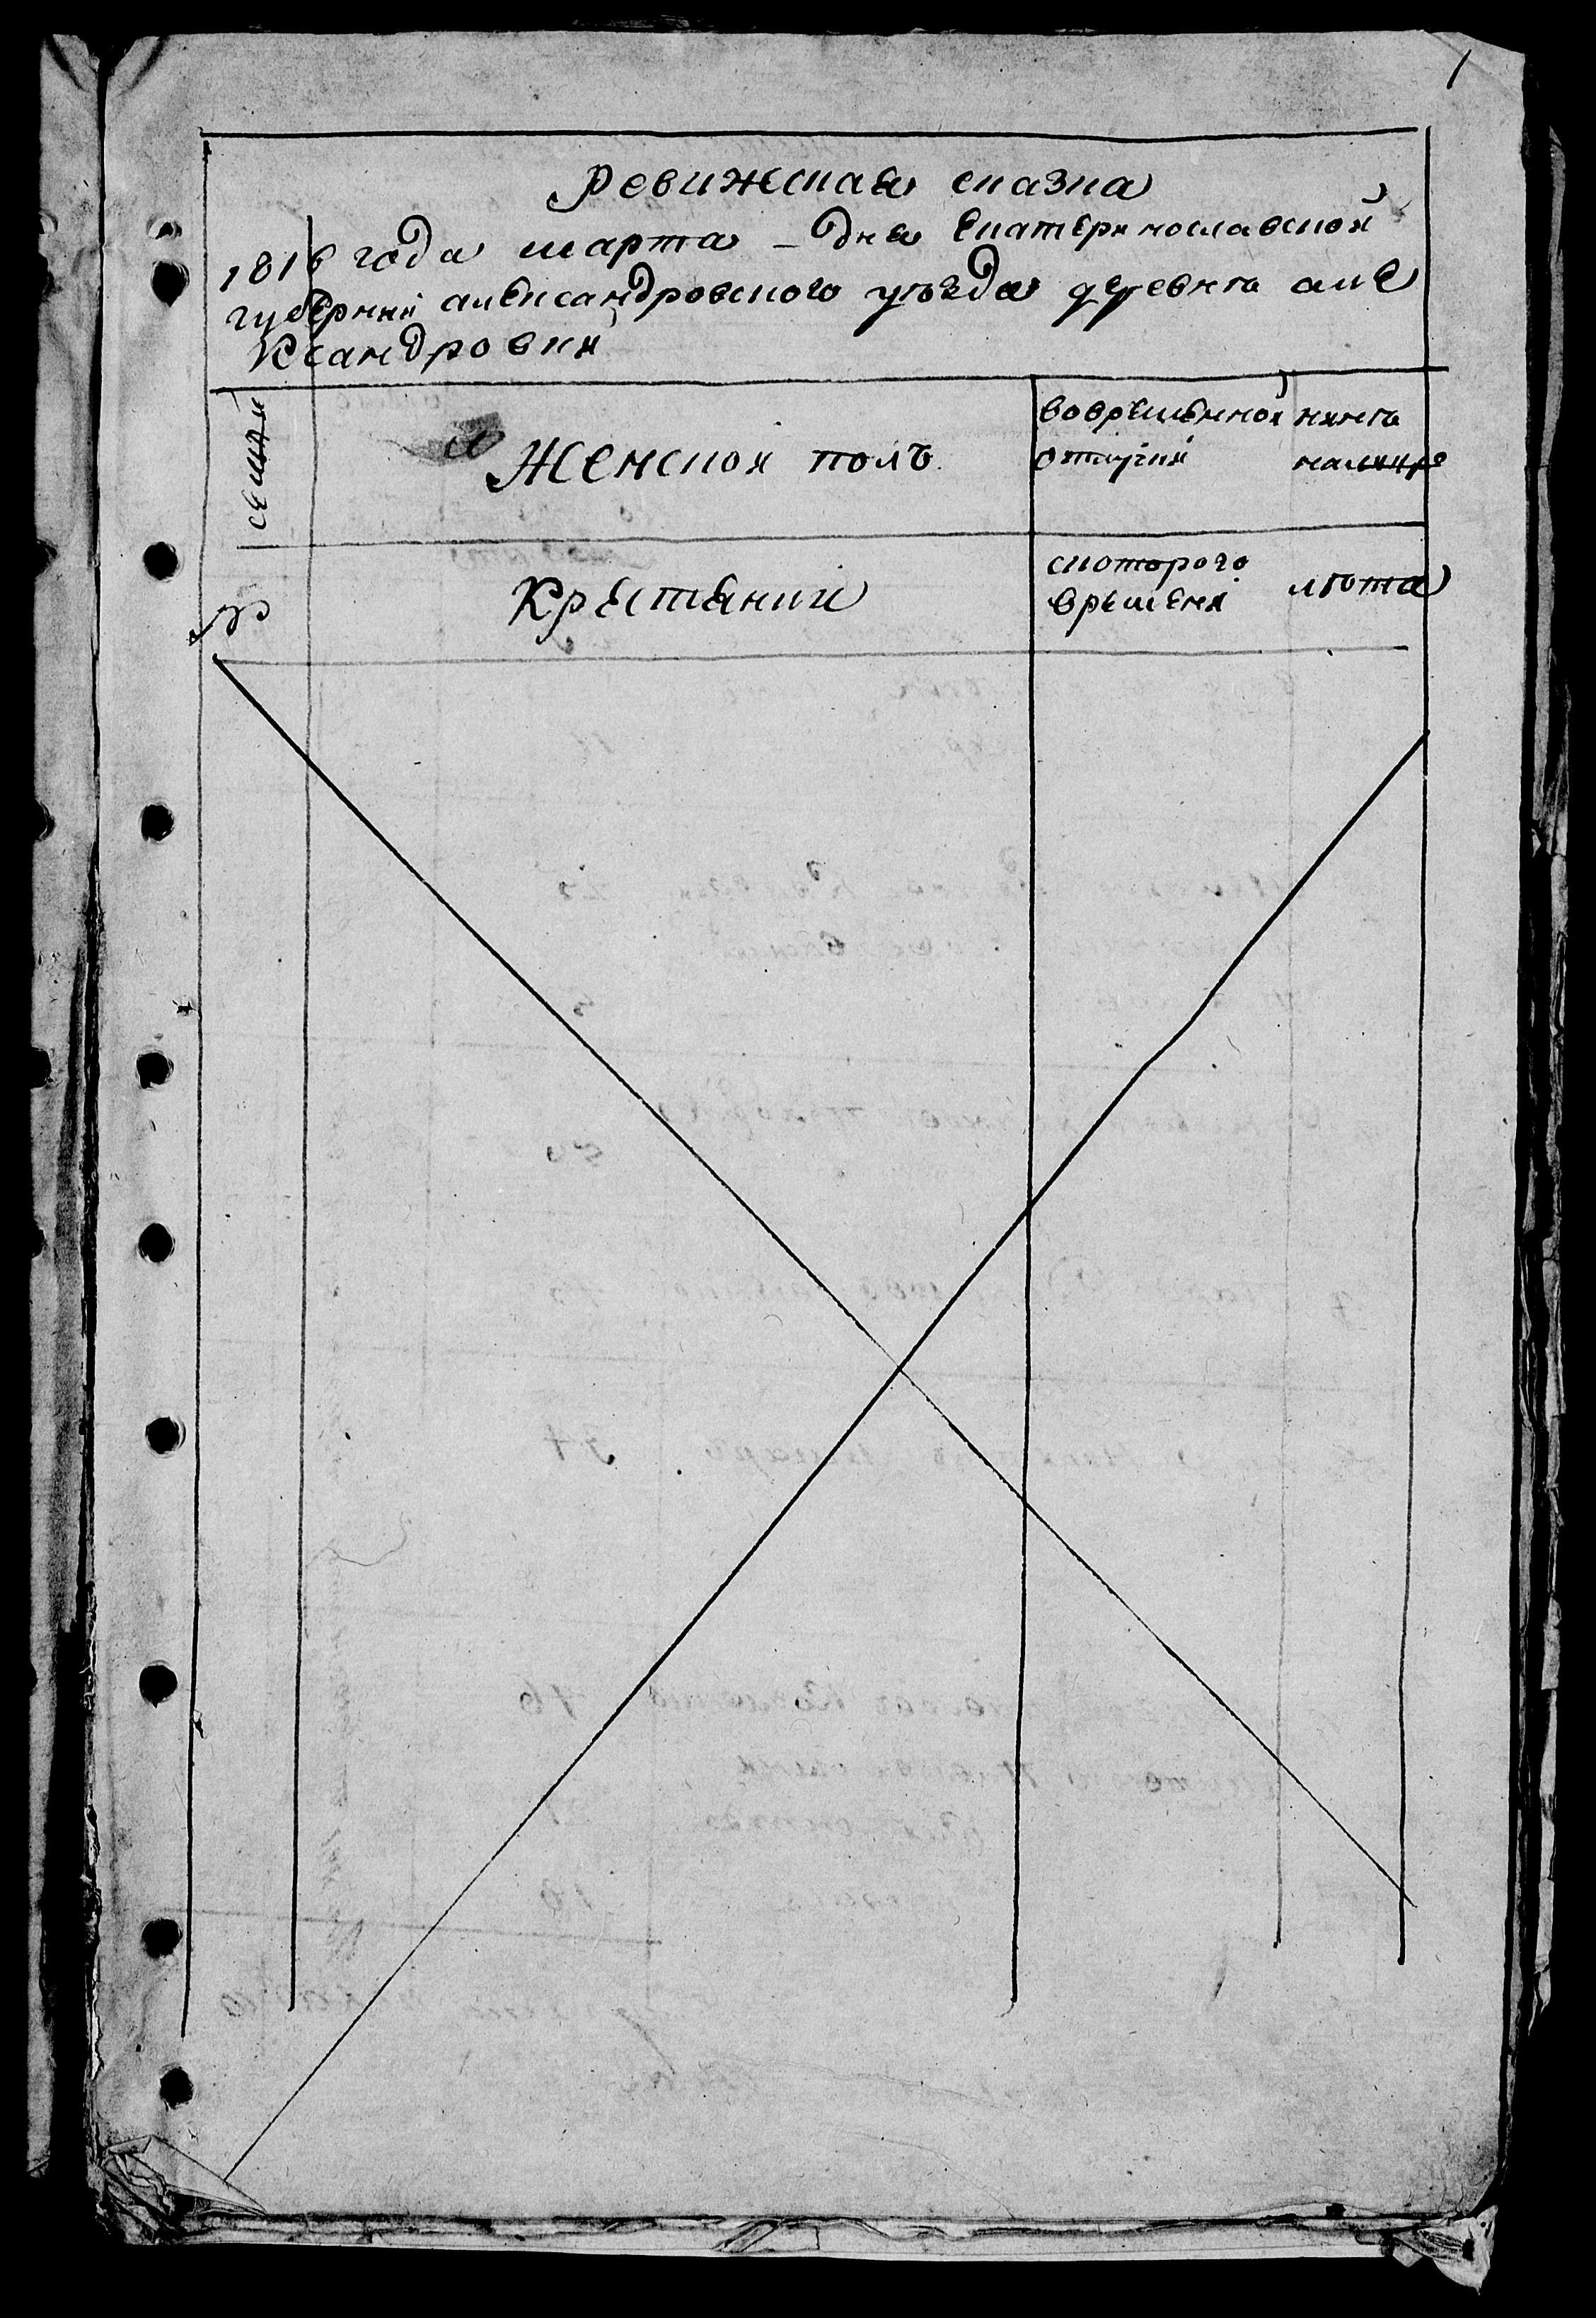 1
Ревижская сказка
1816 года марта – дня Екатеринославской
губернии александровского уѣзда деревнѣ але
Ксандровки
семьи
Женской полъ
вовременной
отлучки
нынѣ
налицо
№
Крестянки
скоторого
времени
лѣта